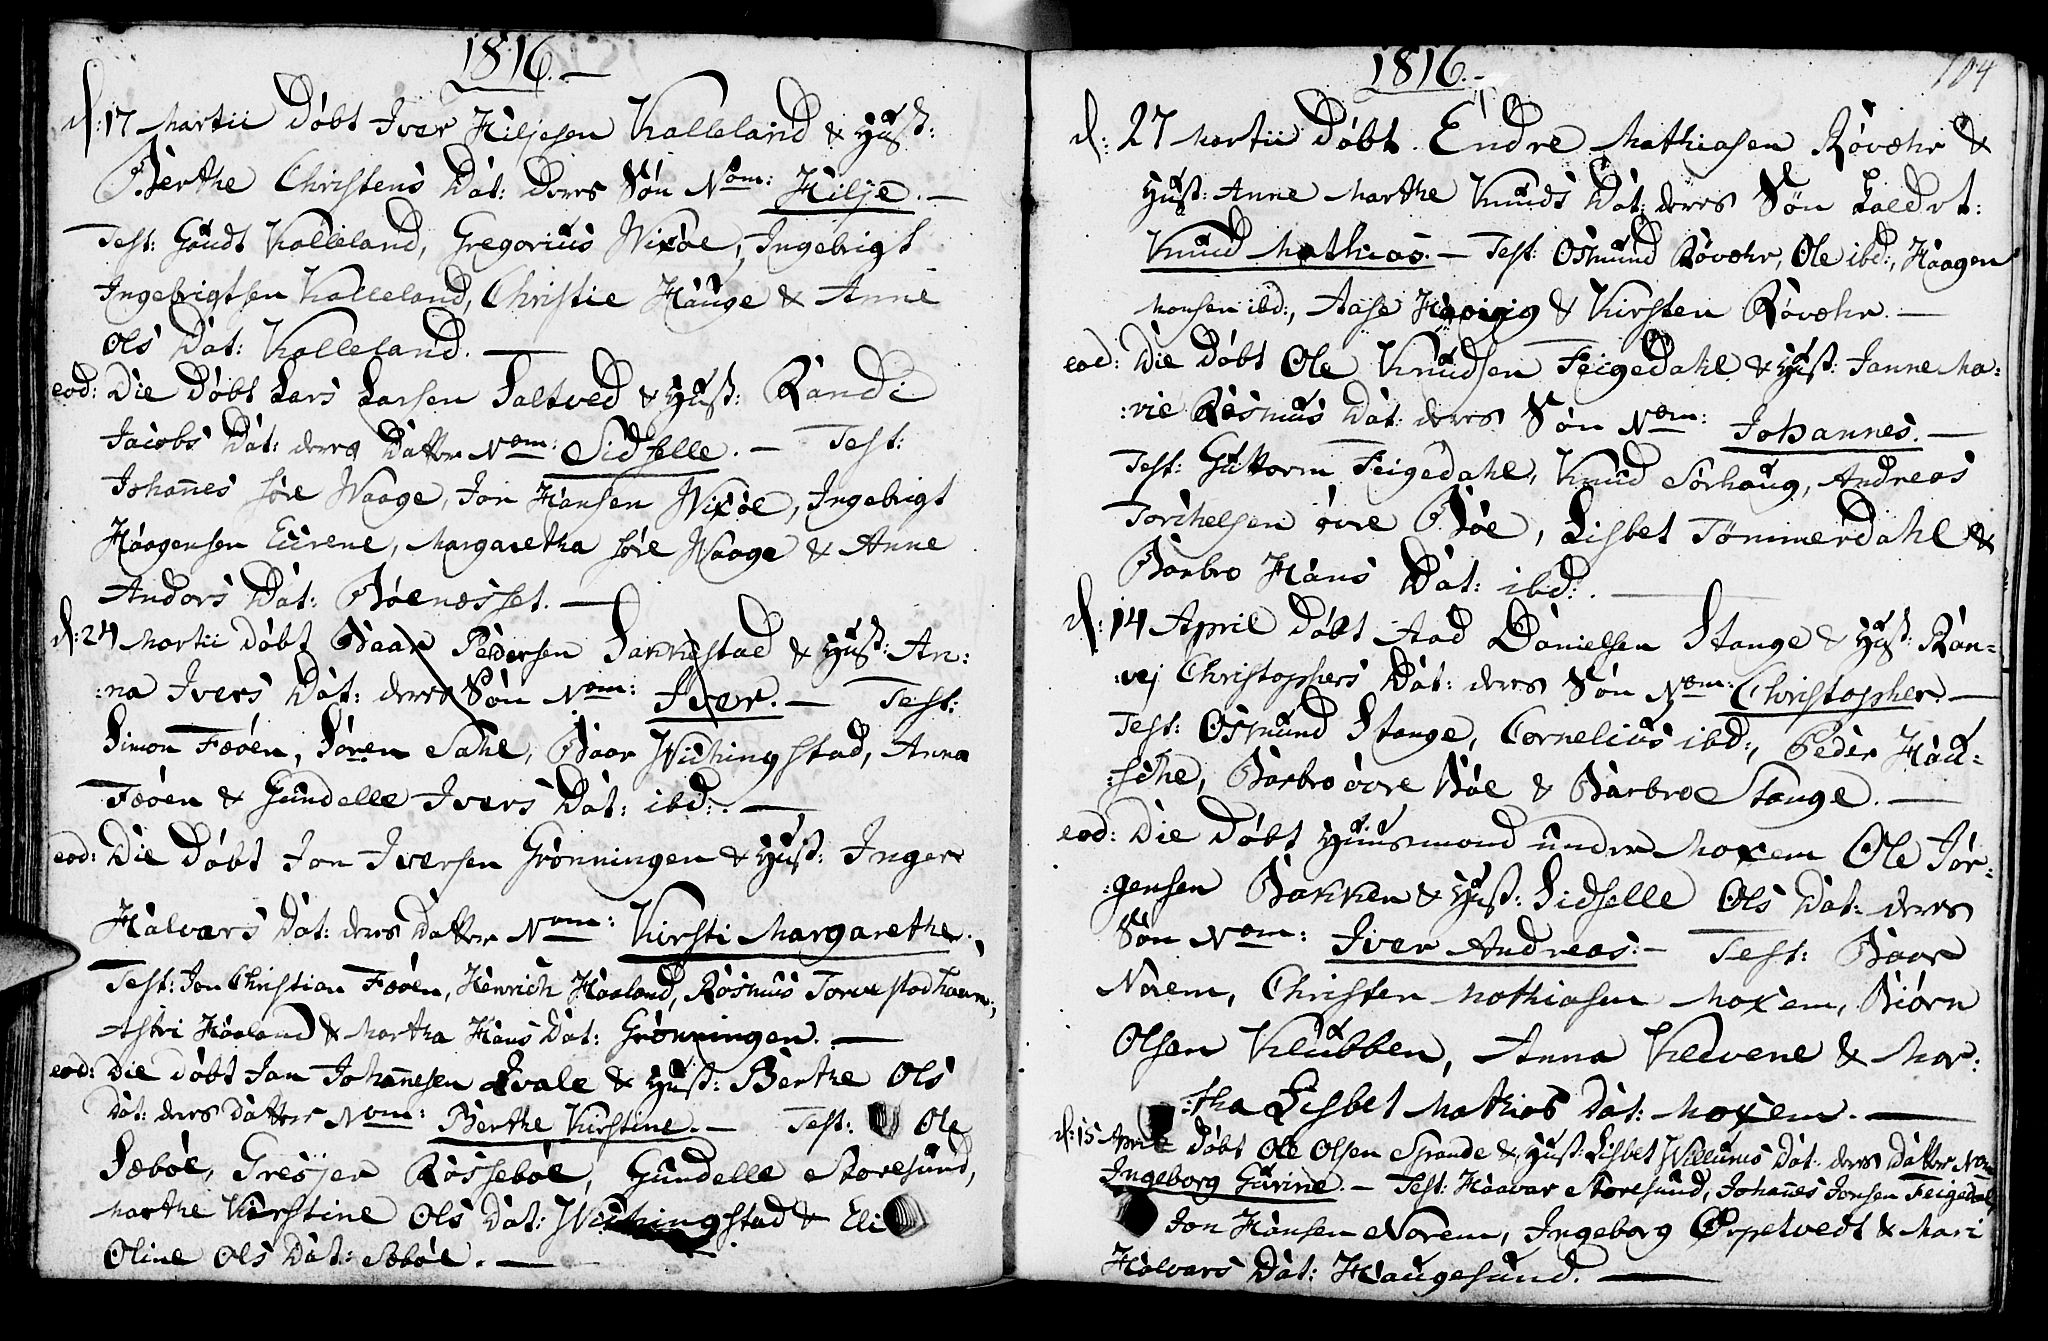 1816.—
d: 17 Martii Döbt Iver Hiljesen Kalleland & Hust:
Berthe Christens Dat: deres Sön Nom: Hilje.—
Test: Gaudt Kalleland, Gregorius Wixöe, Ingebrigt
Ingebrigtsen Kalleland, Christie Hauge & Anne
Ols Dat: Kalleland.—
eod: Die Döbt Lars Larsen Saltved & Hust: Randi
Jacobs Dat: deres Datter Nom: Sidselle.— Test:
Johannes söre Waage, Jon Hansen Wixöe, Ingebrigt
Haagensen Eirene, Margaretha söre Waage & Anne
Andors Dat: Böenesset.—
d: 24 Martii döbt Baar Pedersen Sakkestad & Hust: An:
:na Ivers Dat: deres Sön Nom: Iver.— Test:
Simon Fæöen, Sören Sahl, Baar Widhingstad, Anna
Fæöen & Gundelle Ivers Dat: ibd:.—
eod: Die Döbt Jon Iversen Grönningen & Hust: Inger
Halvars Dat: deres Datter Nom: Kirsti Margarethe.
Test: Jon Christian Fæöen, Henrich Haaland, Rasmus Torvestadhavn,
Astri Haaland & Martha Hans Dat: Grönningen.—
eod: Die döbt Jan Johannesen Qvale & Hust: Berthe Ols
Dat: deres Datter Nom: Berthe Kirstine.— Test: Ole
Sæböe, Gresjer Rosseböe, Gundelle Storesund,
Marthe Kirstine Ols Dat: Widhingstad & Eli
Oline Ols Dat: Sæböe.—
1816.—
104
d: 27 Martii Döbt. Endre Mathiasen Rövæhr &
Hust: Anne Marthe Knuds Dat: deres Sön kaldet:
Knud Mathias.— Test: Osmund Rövæhr, Ole ibd:, Haagen
Monsen ibd:, Aase & Kirsten Rövæhr.—
eod: Die Döbt Ole Knudsen Feigedahl & Hust: Janne Ma:
:rie Rasmus Dat: deres Sön Nom: Johannes.—
Test: Guttorm Feigedahl, Knud Sörhaug, Andreas
Torchelsen övre Böe, Lisbet Tömmerdahl &
Barbro Hans Dat: ibd:.—
d: 14 April Döbt Aad Danielsen Stange & Hust: Ran-
:vej Christophers Dat: deres Sön Nom: Christopher.—
Test: Osmund Stange, Cornelius ibd:, Peder Hau-
:sche, Barbro övre Böe & Barbroe Stange.—
eod: Die Döbt Huusmand under Moxem Ole Jör-
:gensen Bakken & Hust: Sidselle Ols Dat: deres
Sön Nom: Iver Andreas:— Test: Baar
Norem, Christen Mathiasen Moxem, Biörn
Olsen Klubben, Anna Kedvene & Mar:
:tha Lisbet Mathias Dat: Moxem.—
d: 15 April Döbt Ole Olsen Spande & Hust: Lisbet Willums Dat: deres Datter Nom
Ingeborg Gurine.— Test: Haavar Storesund, Johannes Jonsen Feigedal,
Jon Hansen Norem, Ingeborg Orpetvedt & Mari
Halvars Dat: Haugesund.—